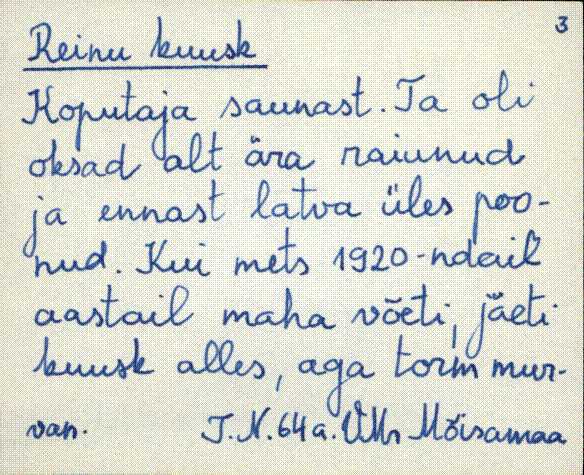 3
Reinu kuusk
Koputaja saunast. Ta oli
oksad alt ära raiunud
ja ennast latva üles poo-
nud. Kui mets 1920-ndail
aastail maha võeti, jäeti
kuusk alles, aga torm mur-
van. J.N. 64 a. Mõisamaa